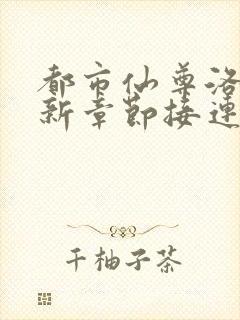 都市仙尊洛
新章节接连
千柚子茶